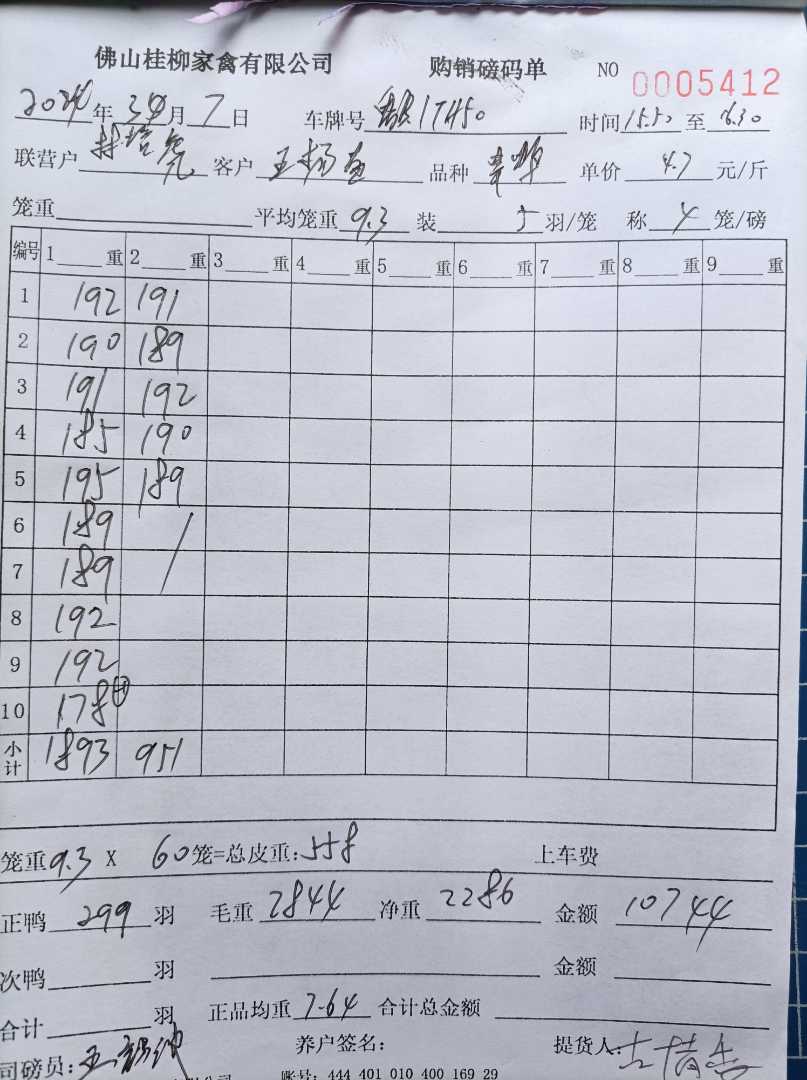 佛山桂柳家禽有限公司 购销磅码单 NO 0005412
2024年 月7日 车牌号 17H50 时间15.50至16.30
联营户 客户王杨 品种 单价4.7元/斤
笼重 平均笼重9.3 装5羽/笼 称4笼/磅
编号 1 重 2 重 3 重 4 重 5 重 6 重 7 重 8 重 9 重
1 192 191
2 190 189
3 191 192
4 185 190
5 195 189
6 189 /
7 189
8 192
9 192
10 178
小计 1893 951
笼重9.3 X 60笼=总皮重:558 上车费
正鸭299羽 毛重2844 净重2286 金额10744
次鸭 羽 金额
合计 羽 正品均重7.64 合计总金额
司磅员: 王 养户签名: 提货人:
账号: 444 401 010 400 169 29